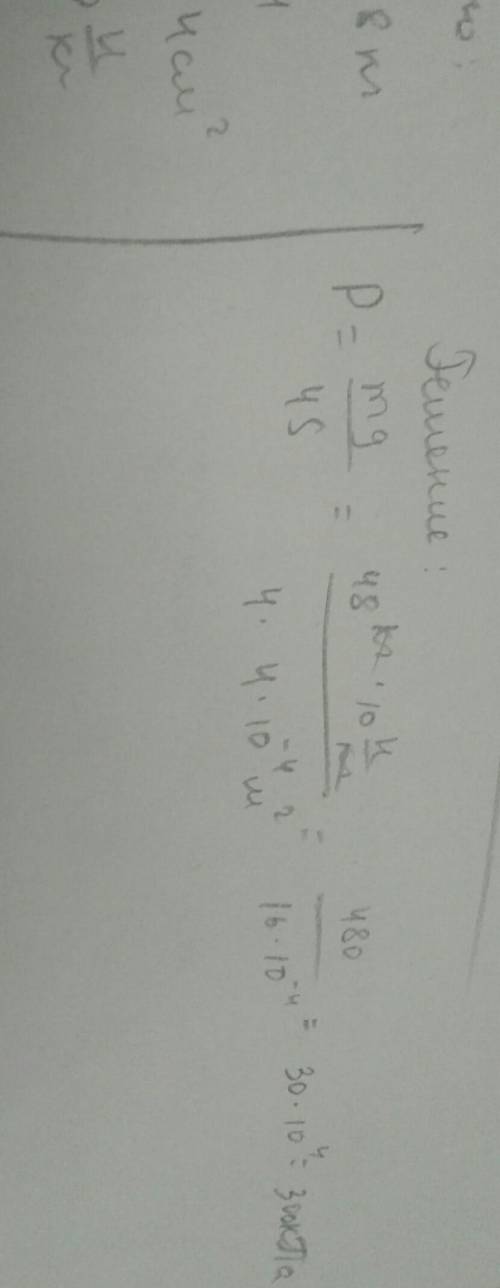 но:
8 кг
4 см²
Н/кг
Решение:
P = mg/4S = 48 кг · 10 Н/кг / 4 · 4 · 10⁻⁴ м² = 480 / 16 · 10⁻⁴ = 30 · 10⁴ = 300кПа